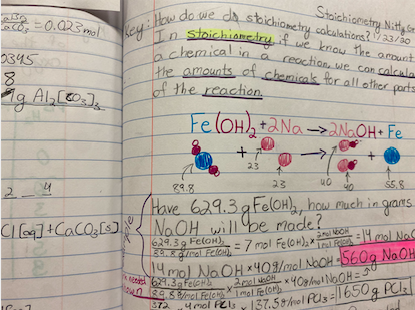 CaCO₃ = 0.023mol
0345
8
g Al₂[CO₃]₃
2 4
Cl[aq]+CaCO₃[s]
Stoichiometry Nitty Gr
1/23/20
Key: How do we do stoichiometry calculations?
In stoichiometry if we know the amount
a chemical in a reaction we can calcula
the amounts of chemicals for all other parts
of the reaction.
Fe(OH)₂+2Na→2NaOH+Fe
+ → +
23
89.8 23 40 40 55.8
Have 629.3g Fe(OH)₂, how much in grams
NaOH will be made?
629.3g Fe(OH)₂ = 7 mol Fe(OH)₂ × 2mol NaOH = 14 mol Na
89.8g/mol Fe(OH)₂ 1mol Fe(OH)₂
14mol NaOH × 40g/mol NaOH = 560g NaOH
629.3g Fe(OH)₂ × 2mol NaOH × 40g/mol NaOH =
89.8g/mol Fe(OH)₂ 1mol Fe(OH)₂
needed
372 4mol PCl₃ × 137.5g/mol PCl₃ = 1650g PCl₃